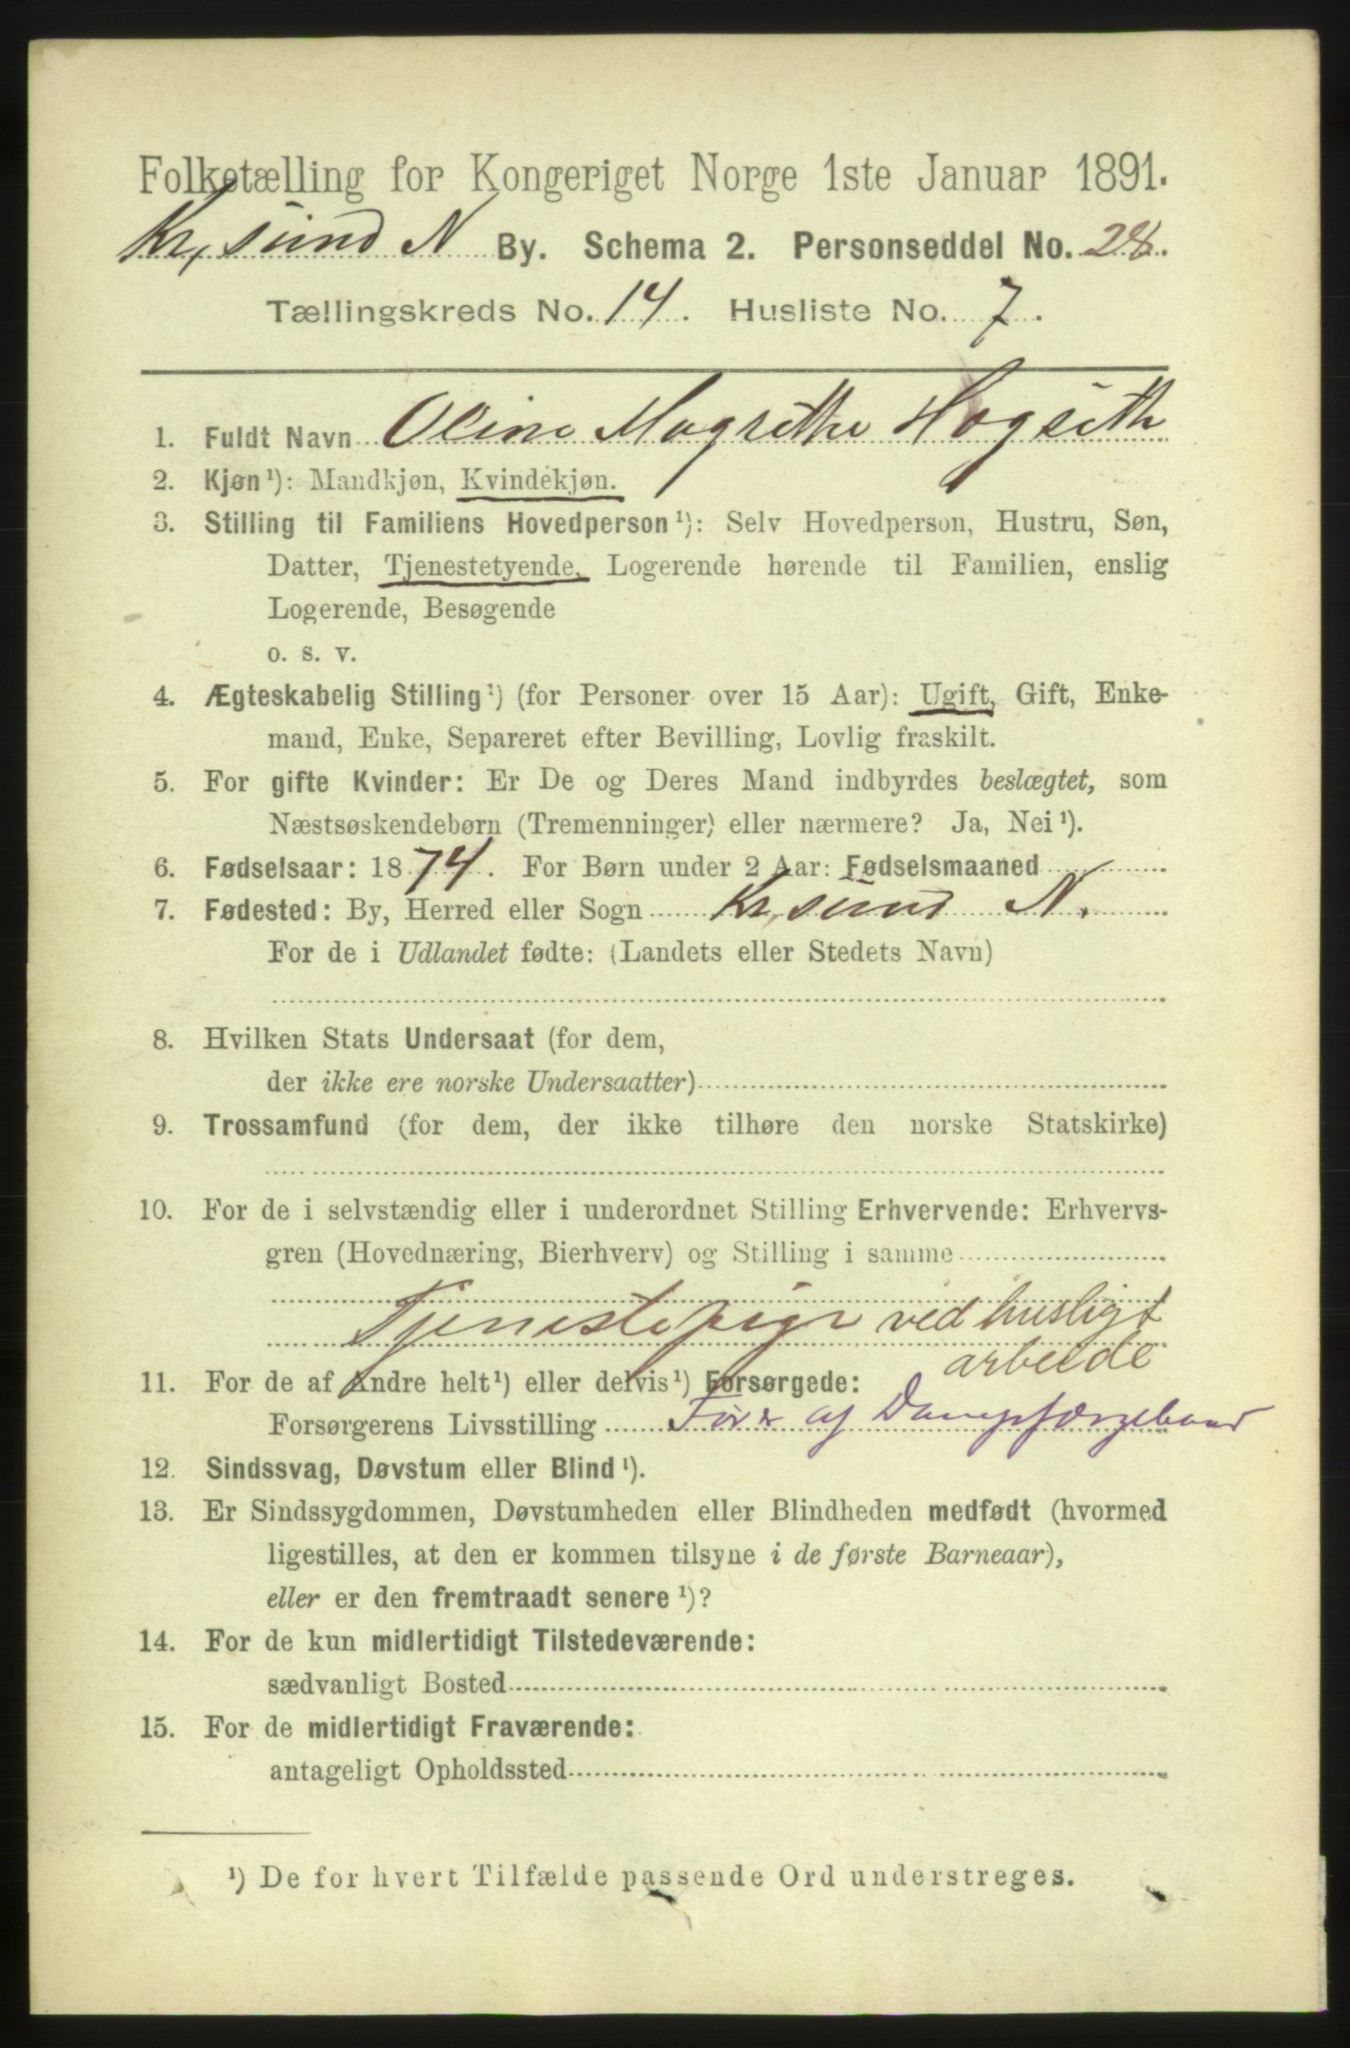 Folketælling for Kongeriget Norge 1ste Januar 1891.
Kr,sund N By. Schema 2. Personseddel No. 28.
Tællingskreds No. 14. Husliste No. 7.
1. Fuldt Navn Oline Magrethe Hogseth
2. Kjøn¹): Mandkjøn, Kvindekjøn.
3. Stilling til Familiens Hovedperson¹): Selv Hovedperson, Hustru, Søn,
Datter, Tjenestetyende, Logerende hørende til Familien, enslig
Logerende, Besøgende
o. s. v.
4. Ægteskabelig Stilling¹) (for Personer over 15 Aar): Ugift, Gift, Enke-
mand, Enke, Separeret efter Bevilling, Lovlig fraskilt.
5. For gifte Kvinder: Er De og Deres Mand indbyrdes beslægtet, som
Næstsøskendebørn (Tremenninger) eller nærmere? Ja, Nei¹).
6. Fødselsaar: 1874. For Børn under 2 Aar: Fødselsmaaned
7. Fødested: By, Herred eller Sogn Kr,sund N.
For de i Udlandet fødte: (Landets eller Stedets Navn)
8. Hvilken Stats Undersaat (for dem,
der ikke ere norske Undersaatter)
9. Trossamfund (for dem, der ikke tilhøre den norske Statskirke)
10. For de i selvstændig eller i underordnet Stilling Erhvervende: Erhvervs-
gren (Hovednæring, Bierhverv) og Stilling i samme
Tjenestepige ved husligt
arbeide
11. For de af Andre helt¹) eller delvis¹) Forsørgede:
Forsørgerens Livsstilling Fører af Dampfærgebaad
12. Sindssvag, Døvstum eller Blind¹).
13. Er Sindssygdommen, Døvstumheden eller Blindheden medfødt (hvormed
ligestilles, at den er kommen tilsyne i de første Barneaar),
eller er den fremtraadt senere¹)?
14. For de kun midlertidigt Tilstedeværende:
sædvanligt Bosted
15. For de midlertidigt Fraværende:
antageligt Opholdssted
¹) De for hvert Tilfælde passende Ord understreges.